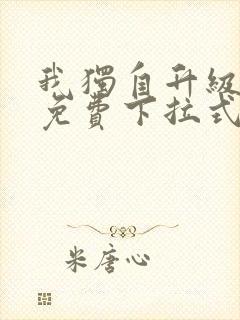 我獨自升級
免費下拉式
米唐心